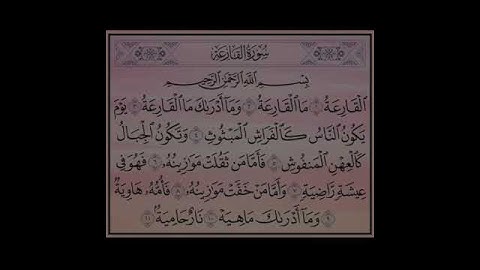 سُورَةُ القَارِعَةِ
بِسْمِ ٱللَّهِ ٱلرَّحْمَٰنِ ٱلرَّحِيمِ
ٱلْقَارِعَةُ ١ مَا ٱلْقَارِعَةُ ٢ وَمَآ أَدْرَىٰكَ مَا ٱلْقَارِعَةُ ٣ يَوْمَ
يَكُونُ ٱلنَّاسُ كَٱلْفَرَاشِ ٱلْمَبْثُوثِ ٤ وَتَكُونُ ٱلْجِبَالُ
كَٱلْعِهْنِ ٱلْمَنفُوشِ ٥ فَأَمَّا مَن ثَقُلَتْ مَوَٰزِينُهُۥ ٦ فَهُوَ فِي
عِيشَةٍ رَّاضِيَةٍ ٧ وَأَمَّا مَنْ خَفَّتْ مَوَٰزِينُهُۥ ٨ فَأُمُّهُۥ هَاوِيَةٌ
٩ وَمَآ أَدْرَىٰكَ مَا هِيَهْ ١٠ نَارٌ حَامِيَةٌۢ ١١